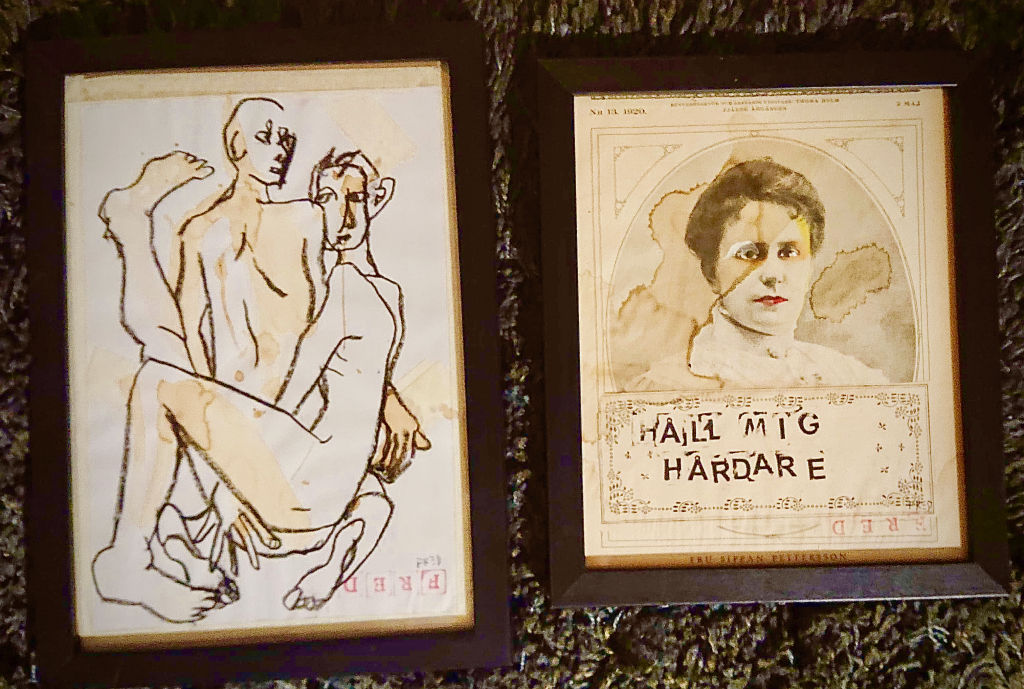 FRED
No 13. 1920.
THORA HOLM
HÅLL MIG
HÅRDARE
FRED
FRU SIPPAN PETTERSSON